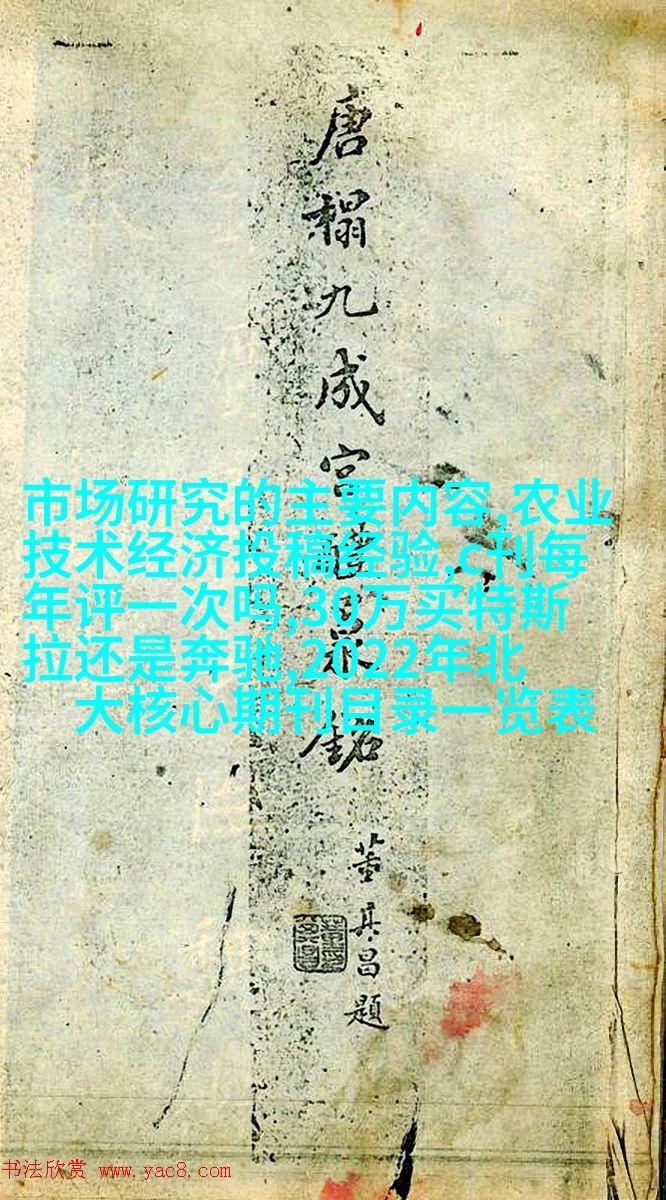 唐榻九成宮醴泉銘
董其昌題
市场研究的主要内容,农业
技术经济投稿经验,c刊每
年评一次吗,30万买特斯
拉还是奔驰,2022年北
大核心期刊目录一览表
书法欣赏 www.yac8.com